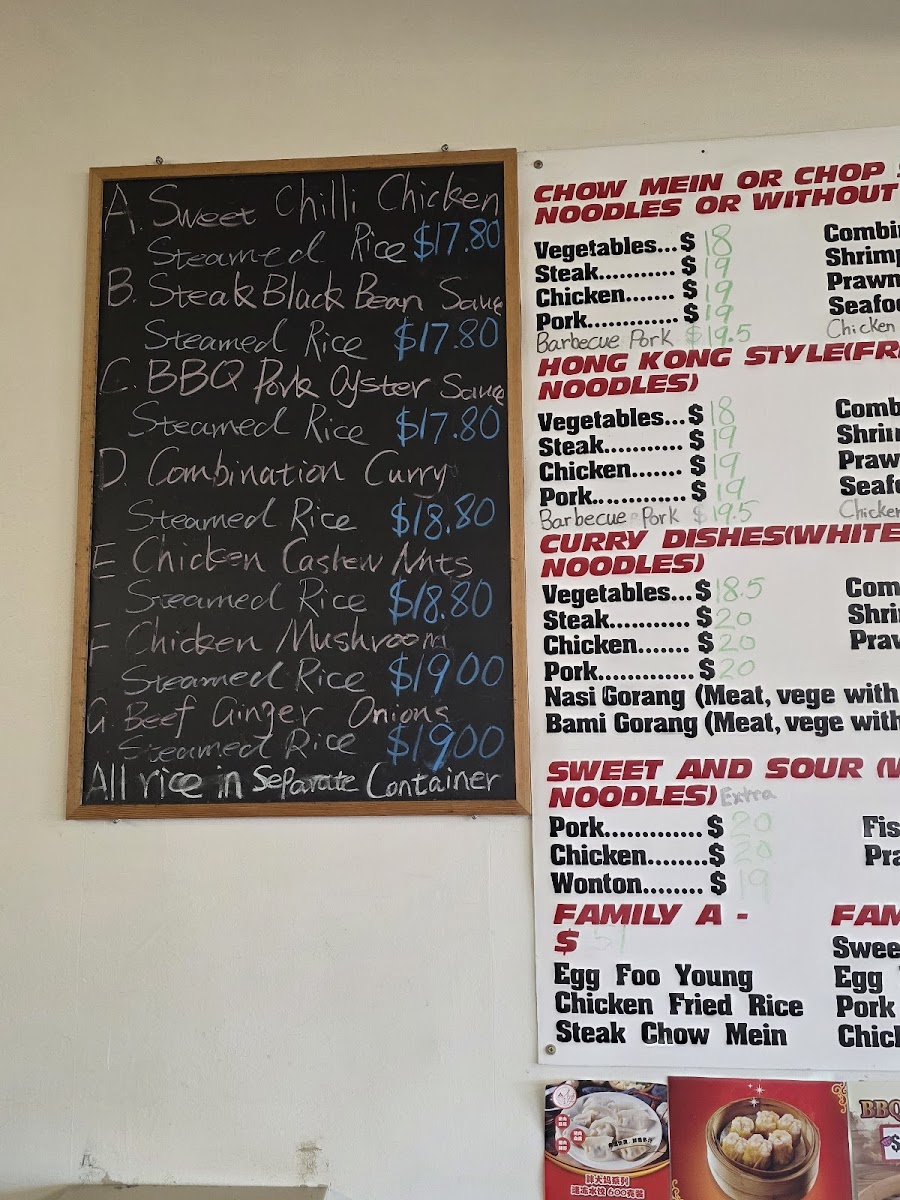 A. Sweet Chilli Chicken
Steamed Rice $17.80
B. Steak Black Bean Sauce
Steamed Rice $17.80
C. BBQ Pork Oyster Sauce
Steamed Rice $17.80
D. Combination Curry
Steamed Rice $18.80
E Chicken Cashew Nuts
Steamed Rice $18.80
F Chicken Mushroom
Steamed Rice $19.00
G. Beef Ginger Onions
Steamed Rice $19.00
All rice in Separate Container
CHOW MEIN OR CHOP
NOODLES OR WITHOUT
Vegetables...$ 18
Steak........... $ 19
Chicken....... $ 19
Pork............. $ 19
Barbecue Pork $ 19.5
Combin
Shrimp
Prawn
Seafoo
Chicken
HONG KONG STYLE(FR
NOODLES)
Vegetables...$ 18
Steak...........$ 19
Chicken....... $ 19
Pork............. $ 19
Barbecue Pork $ 19.5
Comb
Shrim
Praw
Seafo
Chicken
CURRY DISHES(WHITE
NOODLES)
Vegetables...$ 18.5
Steak............ $ 20
Chicken....... $ 20
Pork.............. $ 20
Com
Shri
Praw
Nasi Gorang (Meat, vege with
Bami Gorang (Meat, vege with
SWEET AND SOUR (W
NOODLES) Extra
Pork............. $ 20
Chicken........$ 20
Wonton........ $ 19
Fis
Pra
FAMILY A -
$ 57
Egg Foo Young
Chicken Fried Rice
Steak Chow Mein
FAM
Swee
Egg
Pork
Chick
BBQ
$